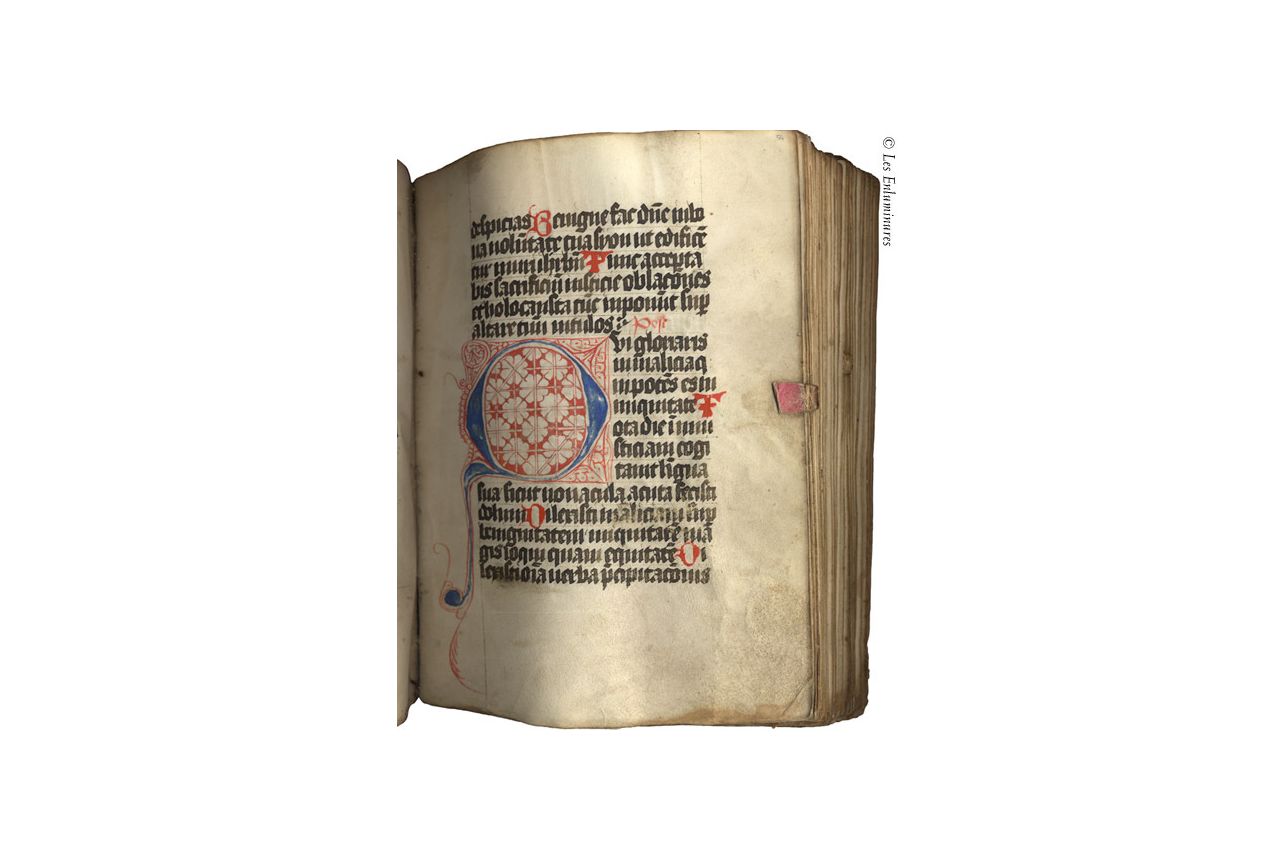 despicias Benigne fac dn̄e in bo
na volūtate tua syon ut edificē
tur muri ihrlm̄ Tunc accepta
bis sacrificiū iusticie oblacōnes
et holocausta tūc inponūt sup̄
altare tuū vitulos Post
Qui gloriaris
in malicia q
inpotēs es in
iniquitate T
ota die iniu
sticiam cogi
tavit līgua
sua sicut novacula acuta fecisti
dolum Dilexisti maliciam sup̄
benignitatem iniquitatē ma
gis loqui quam equitatē Di
lexisti oīa verba p̄cipitacōnis
© Les Enluminures